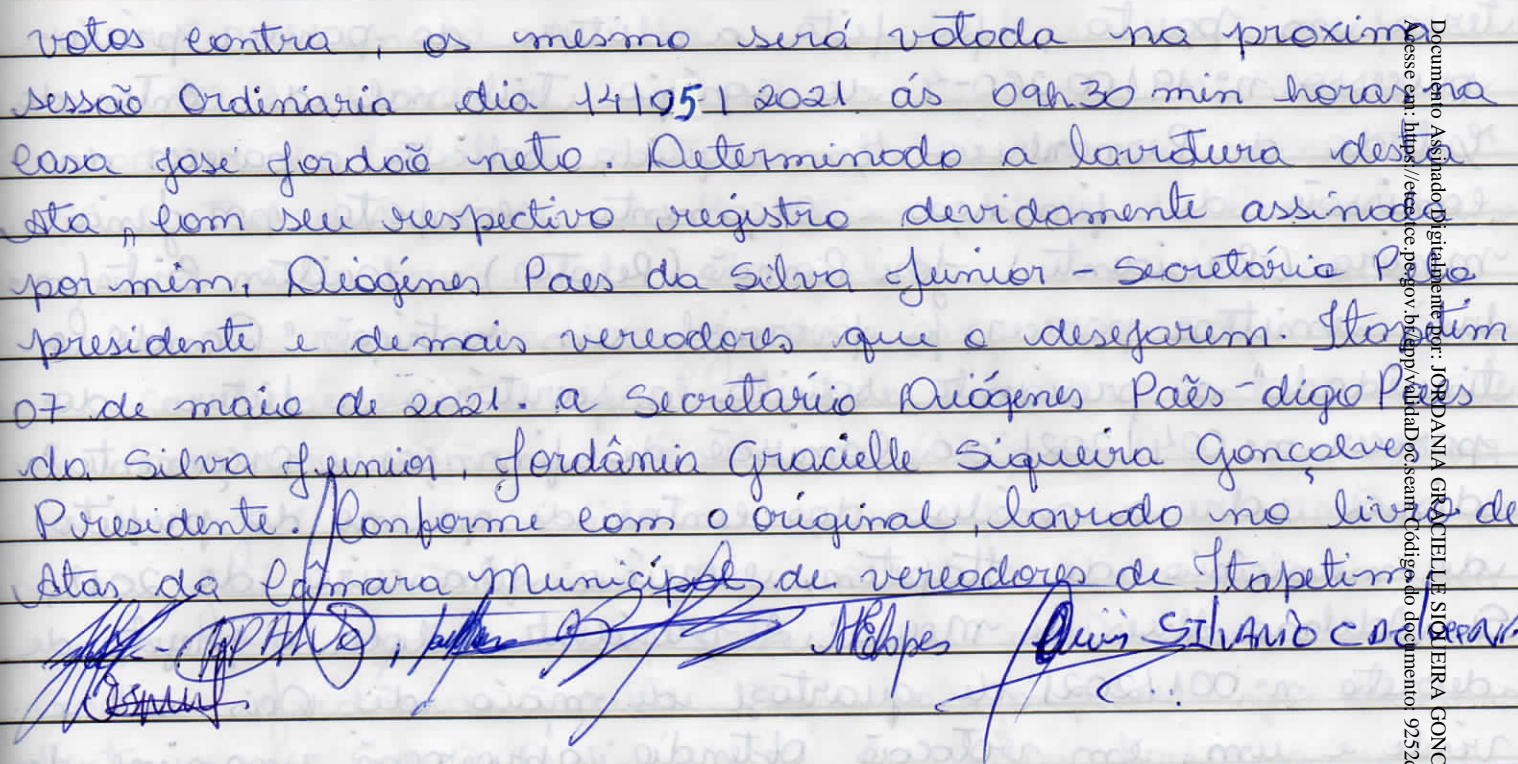 votos contra, os mesmo será votada na proxima
sessão Ordinaria dia 14/05/2021 ás 09h.30 min horas na
Casa José Jordão neto. Determinado a lavratura desta
Ata, com seu respectivo registro devidamente assinada
por mim, Diogénes Paes da Silva Junior - Secretário Pelo
presidente e demais vereadores que o desejarem. Itapetim
07 de maio de 2021. a Secretário Diógenes Paẽs - digo Paes
da Silva Junior, Jordânia Gracielle Siqueira Gonçalves
Presidente. Conforme com o original, lavrado no livro de
Atas da Câmara Municipal de vereadores de Itapetim
SILVANIO
Documento Assinado Digitalmente por: JORDANIA GRACIELLE SIQUEIRA GONC
Acesse em: https://etce.tce.pe.gov.br/epp/validaDoc.seam Código do documento: 9252c